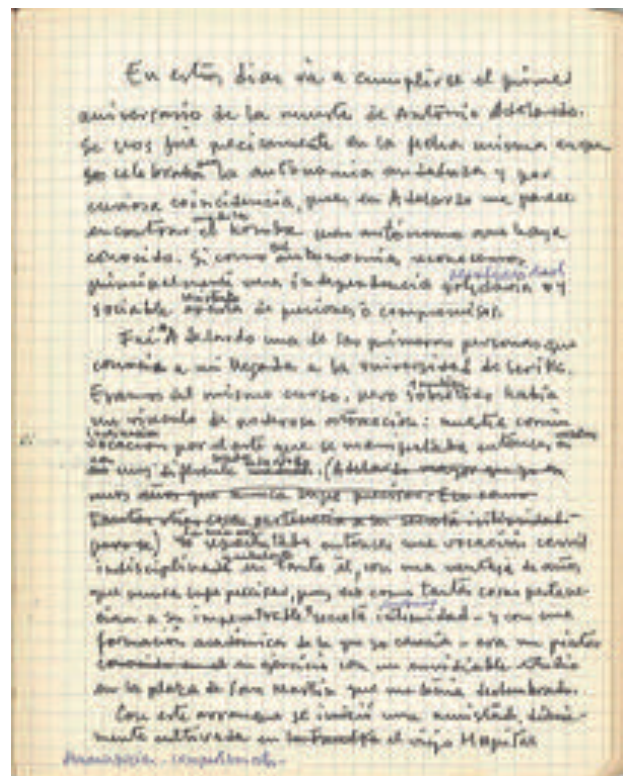 En estos días va a cumplirse el primer
aniversario de la muerte de Antonio Adelardo.
Se nos fue precisamente en la fecha misma en que
se celebraba la autonomía andaluza y por
curiosa coincidencia, pues en Adelardo me parece
encontrar el hombre más autónomo que haya
conocido. Si como autonomía reconocemos
principalmente una independencia solidaria y
sociable de presiones o compromisos.
Fué Adelardo una de las primeras personas que
conocía a mi llegada a la universidad de Sevilla.
Eramos del mismo curso, pero sobretodo había
un vínculo de poderosa atracción: nuestra común
vocación por el arte que se manifestaba entonces
en muy diferente (Adelardo mayor que yo en
unos años que nunca supe precisar. Eso como
tantas otras cosas pertenecía a su secreta intimidad
entonces una vocación
indisciplinada en tanto él, con una ventaja de años
que nunca supe precisar, pues eso como tantas cosas pertene-
cían a su impenetrable secreta intimidad - y con una
formación académica de la que yo carecía - era un pintor
en ejercicio con un envidiable studio
en la plaza de San Martín que me tenía deslumbrado.
Con este arranque se inició una amistad, diaria-
mente cultivada en el viejo Hospital